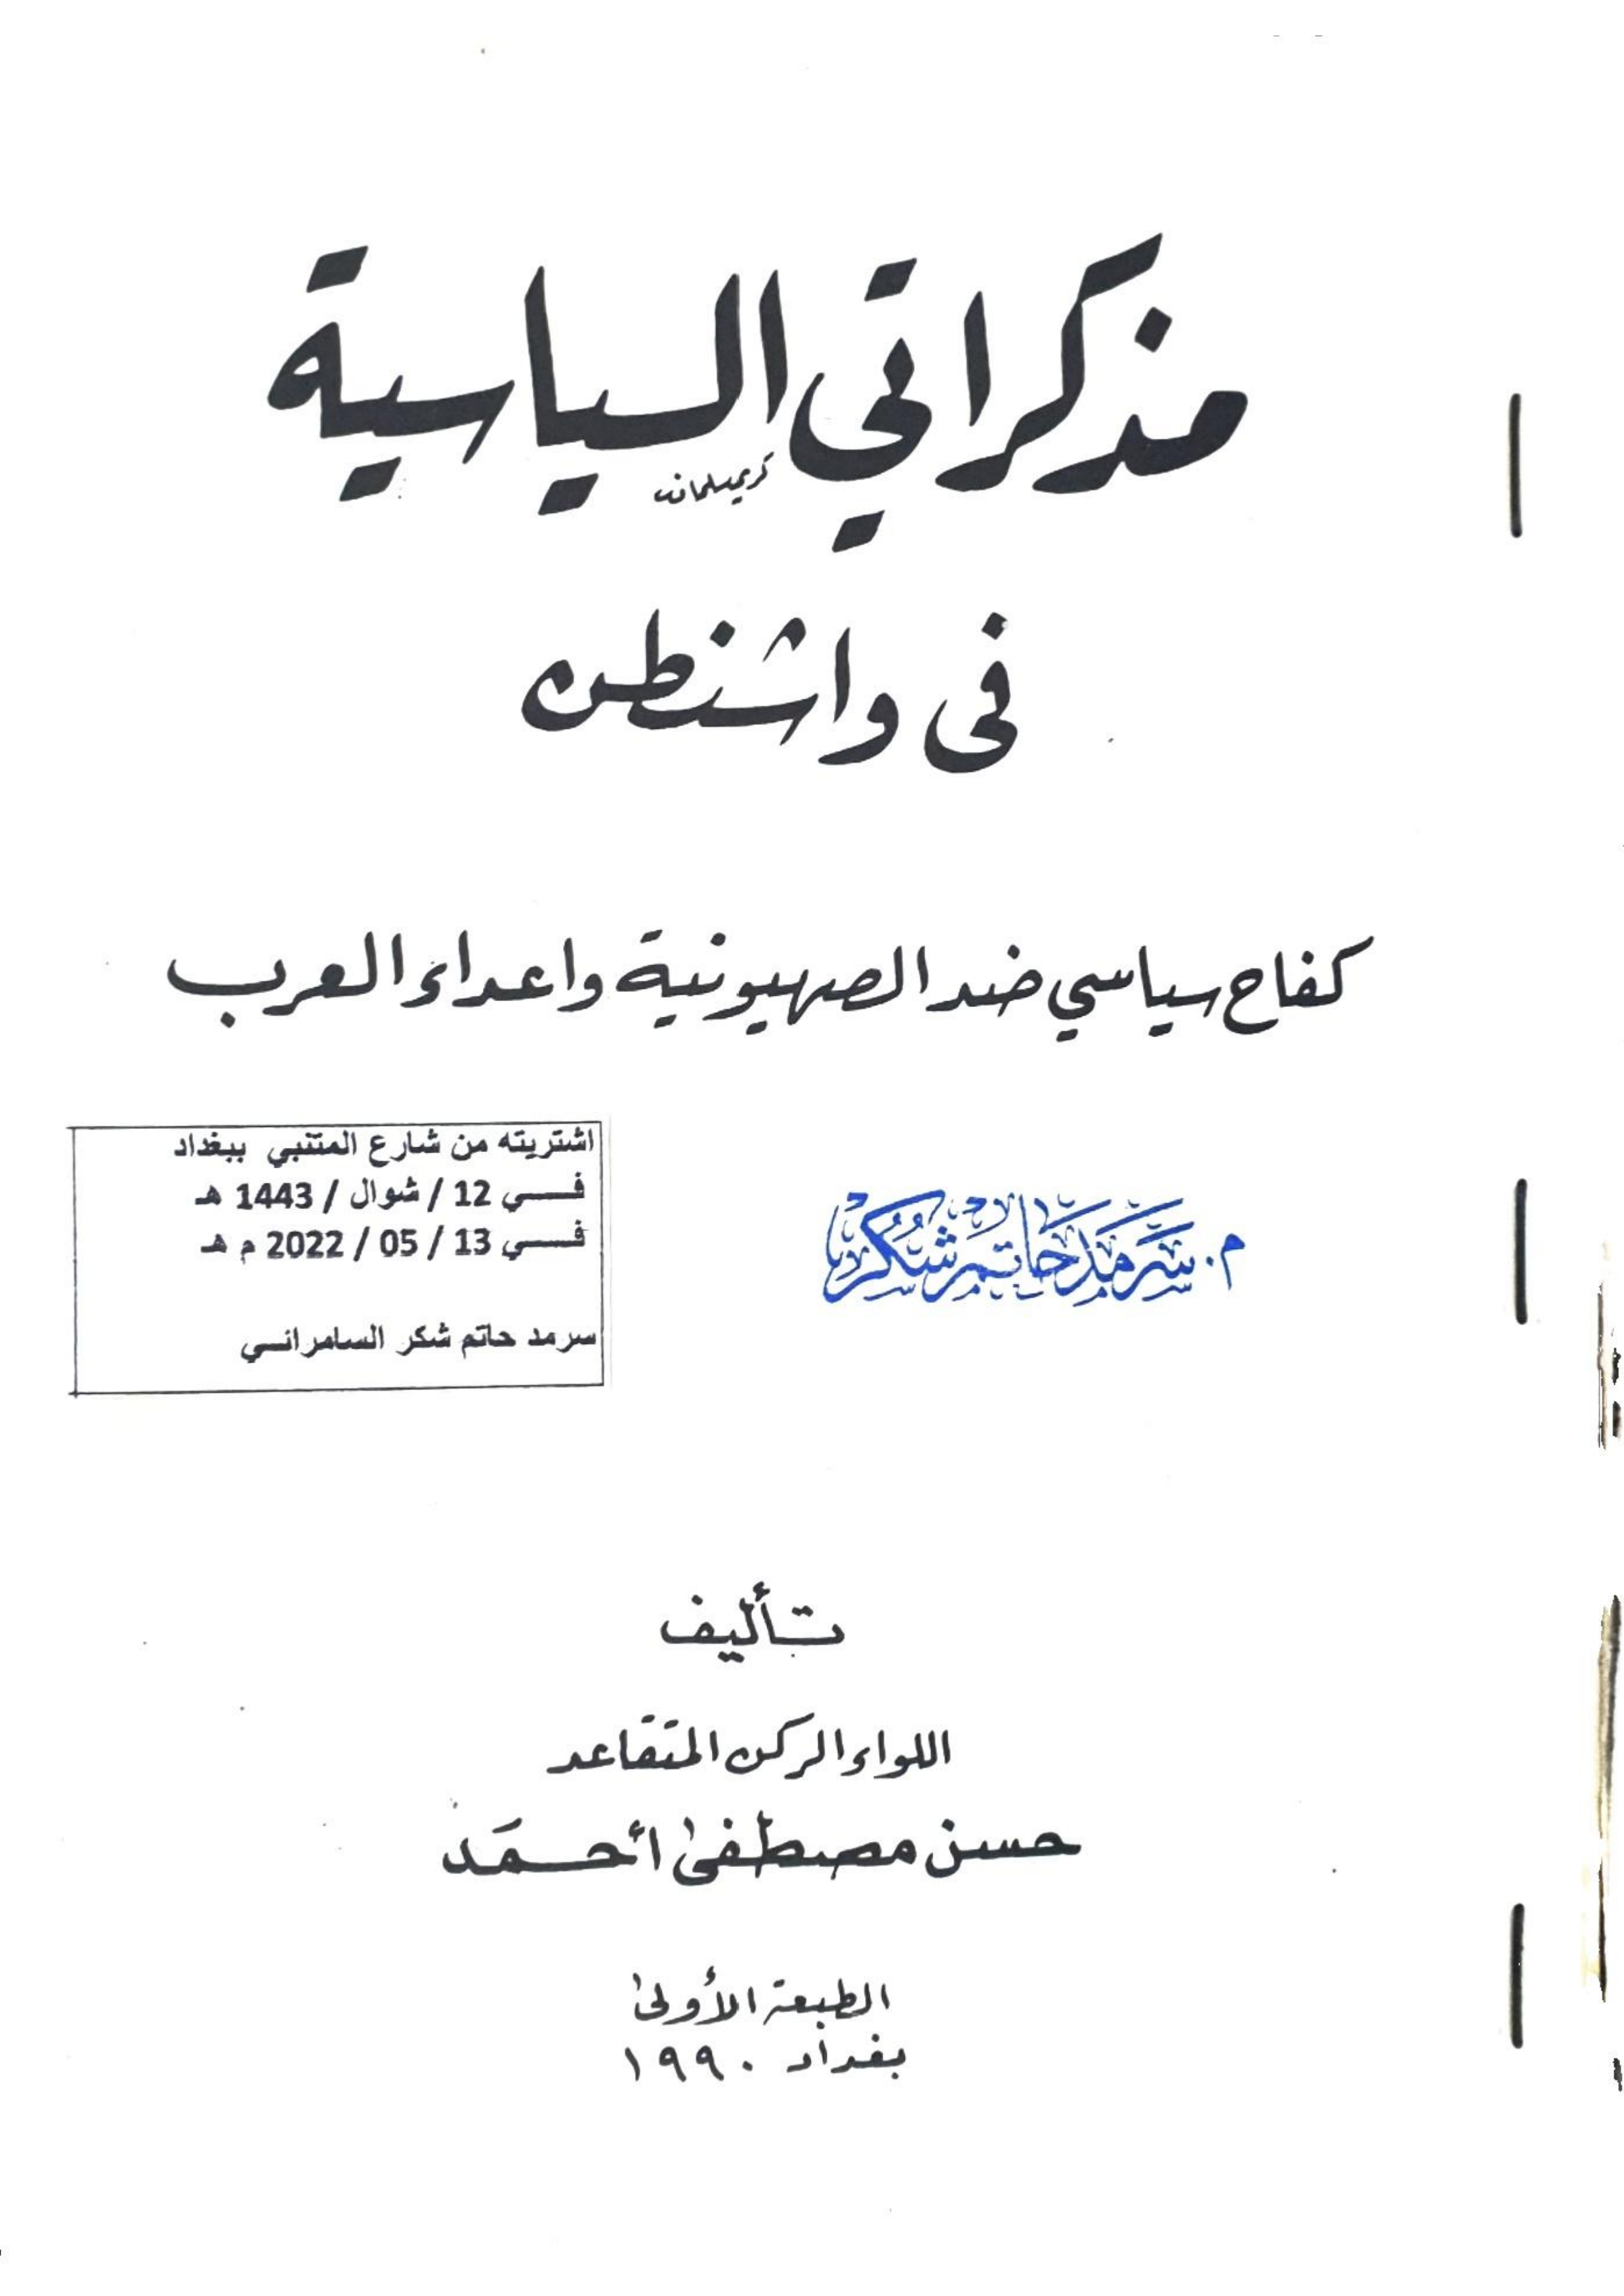 مذكراتي السياسية
كريم سلمان
في واشنطن
كفاح سياسي ضد الصهيونية واعداء العرب
اشتريته من شارع المتنبي ببغداد
فـــي 12 / شوال / 1443 هـ
فـــي 13 / 05 / 2022 م هـ
سرمد حاتم شكر السامرائـي
م. سرمد حاتم شكر
تأليف
اللواء الركن المتقاعد
حسن مصطفى أحمد
الطبعة الأولى
بغداد ١٩٩٠